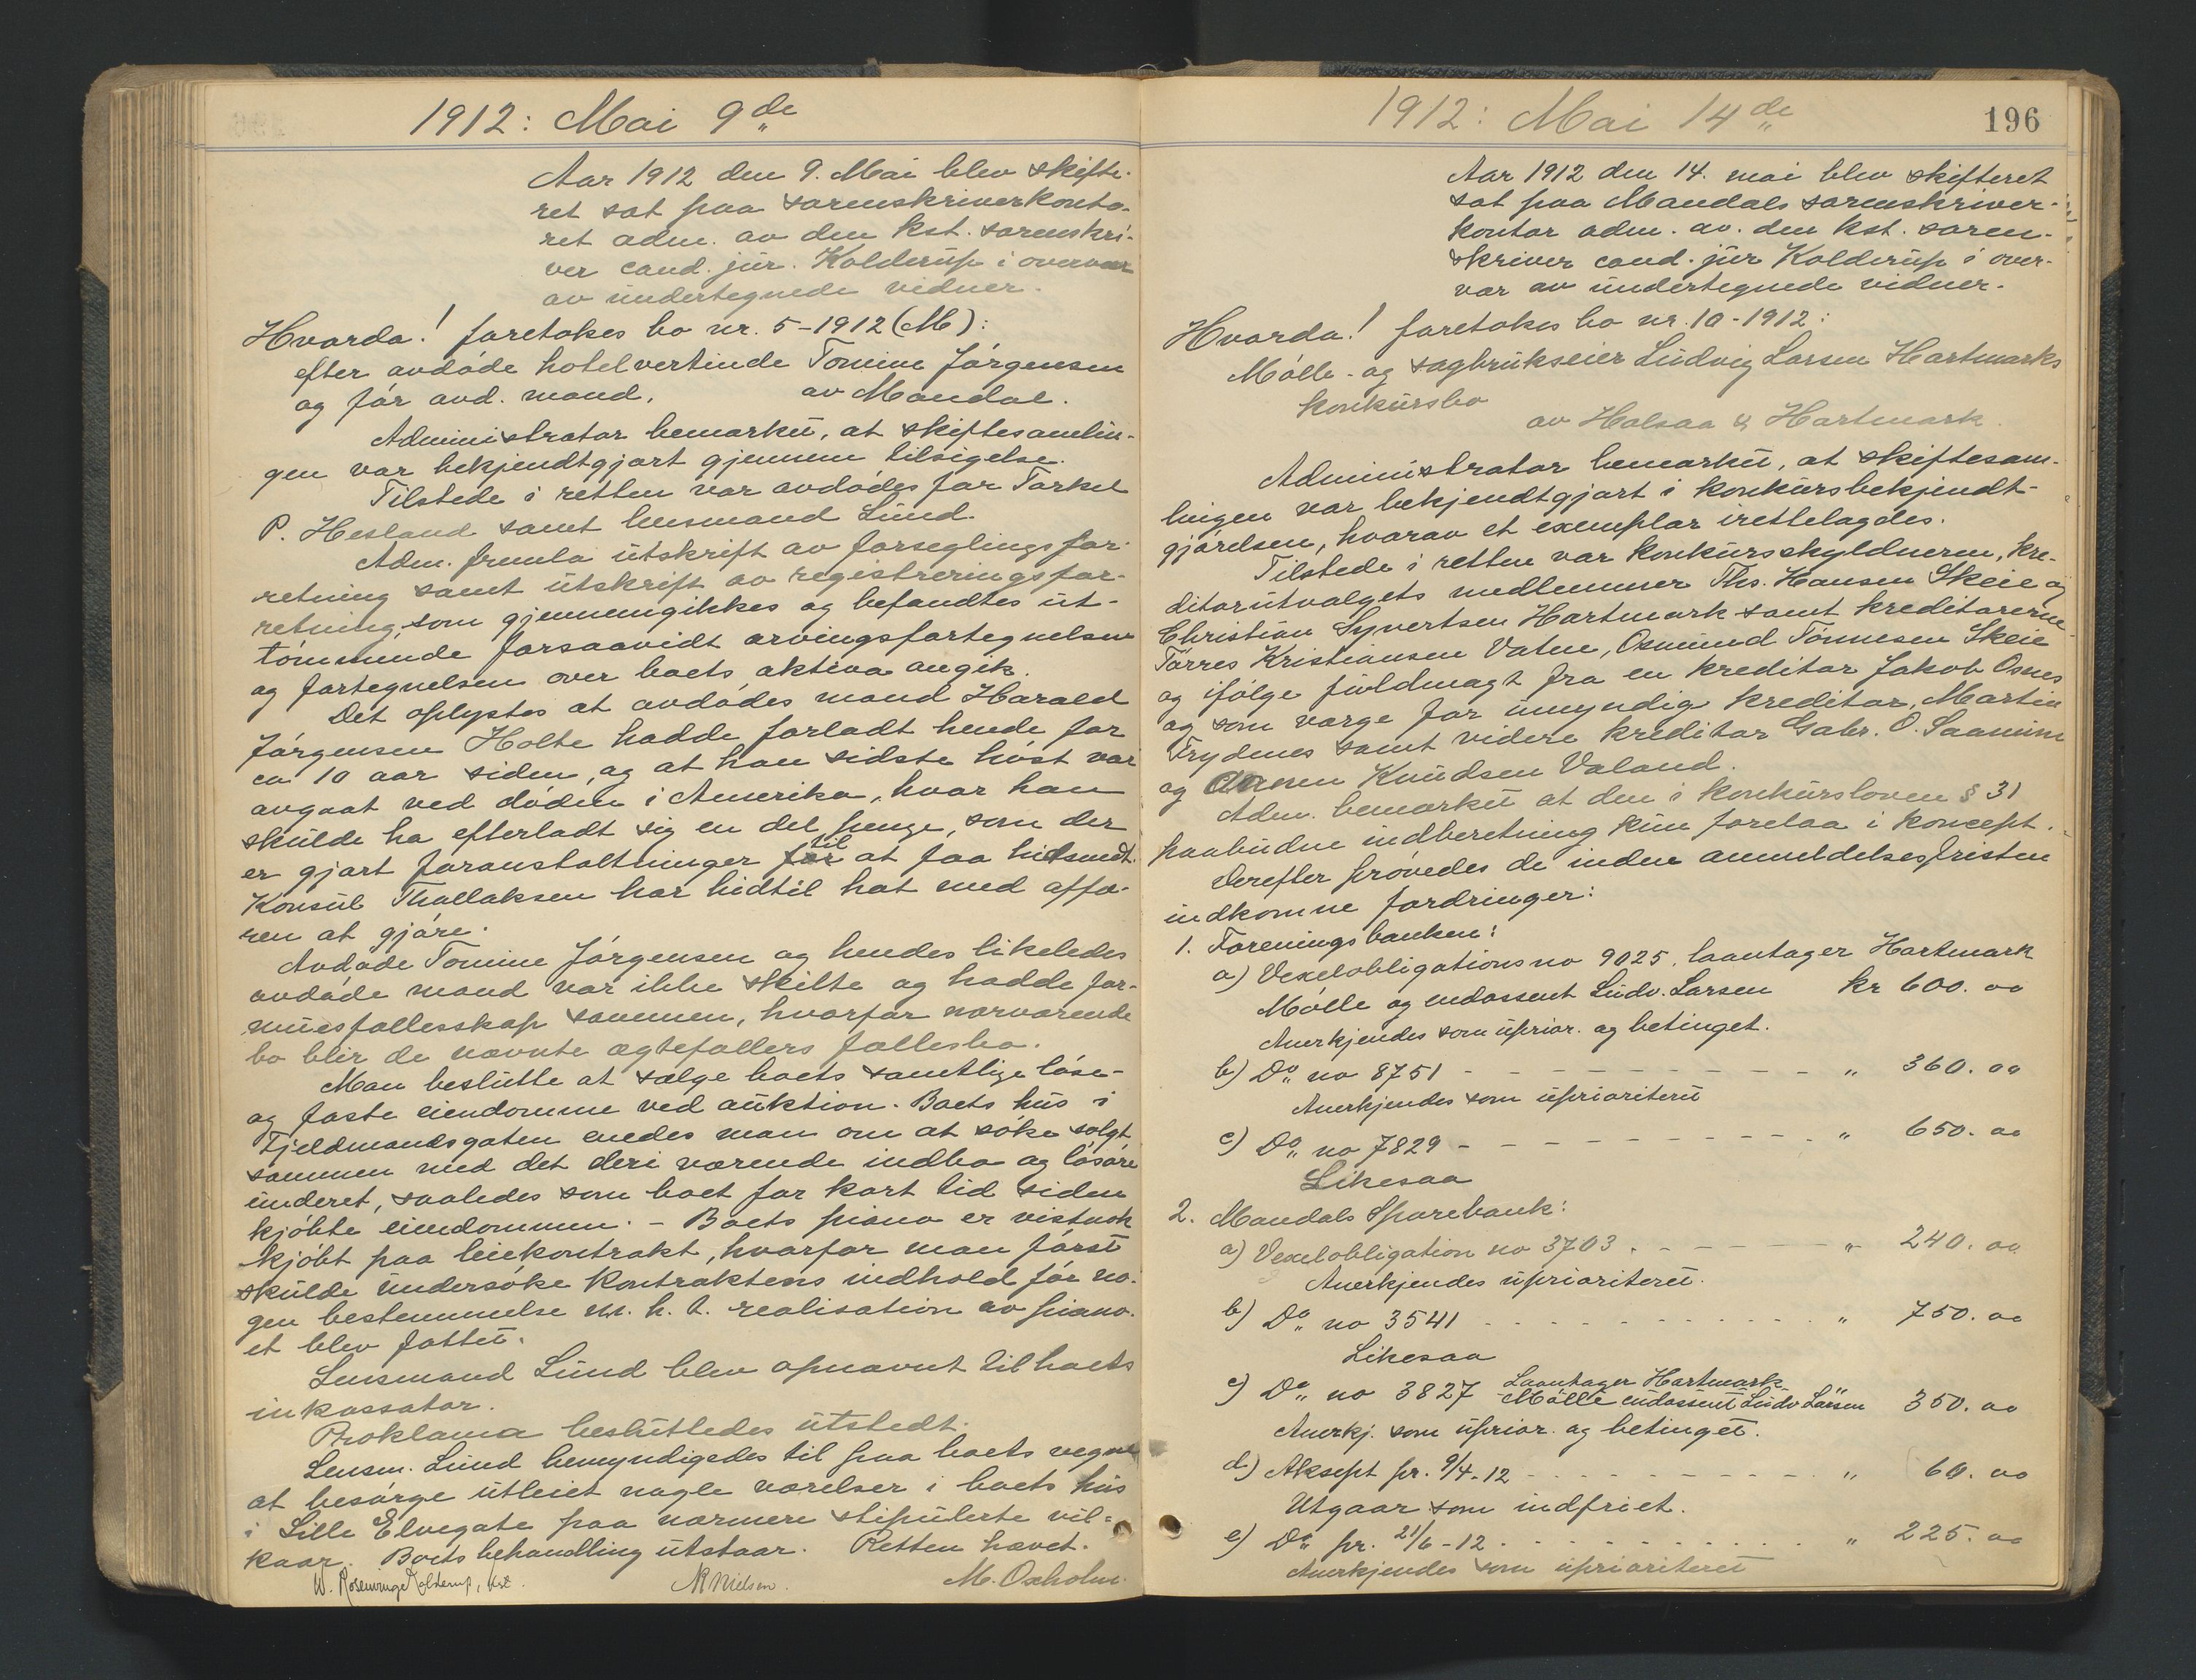 1912: Mai 9de
Aar 1912 den 9. Mai blev skifte-
ret sat paa sorenskriverkonto-
ret adm. av den kst. sorenskri-
ver cand. jur. Kolderup i overvær
av undertegnede vidner.
Hvorda! foretokes bo nr. 5-1912 (M):
efter avdøde hotelvertinde Tomine Jørgensen
og før avd. mand, av Mandal.
Administrator bemærket, at skiftesamlin-
gen var bekjendtgjort gjennem tilsigelse.
Tilstede i retten var avdødes far Torkel
P. Hesland samt lensmand Lund.
Adm. fremla utskrift av forseglingsfor-
retning samt utskrift av registreringsfor-
retning, som gjennemgikkes og befandtes ut-
tømmende forsaavidt arvingsfortegnelsen
og fortegnelsen over boets aktiva angik.
Det oplystes at avdødes mand Harald
Jørgensen Holte hadde forladt hende for
ca 10 aar siden, og at han sidste høst var
avgaat ved døden i Amerika, hvor han
skulde ha efterladt sig en del penge, som der
er gjort foranstaltninger til at faa hitsendt.
Konsul Thallaksen har hidtil hat med affæ-
ren at gjøre.
Avdøde Tomine Jørgensen og hendes likeledes
avdøde mand var ikke skilte og hadde for-
muesfællesskap sammen, hvorfor nærværende
bo blir de nævnte ægtefællers fællesbo.
Man beslutte at sælge boets samtlige løse-
og faste eiendomme ved auktion. Boets hus i
Fjeldmandsgaten enedes man om at søke solgt
sammen med det deri værende indbo og løsøre
underet, saaledes som boet for kort tid siden
kjøbte eiendommen. - Boets piano er vistnok
kjøbt paa leiekontrakt, hvorfor man først
skulde undersøke kontraktens indhold før no-
gen bestemmelse m. h. t. realisation av piano-
et blev fattet.
Lensmand Lund blev opnævnt til boets
inkassator.
Proklama besluttedes utstedt.
Lensm. Lund bemyndigedes til paa boets vegne
at besørge utleiet nogle værelser i boets hus
i Lille Elvegate paa nærmere stipulerte vil-
kaar. Boets behandling utstaar. Retten hævet.
W. Rosenvinge Kolderup, kst. N Nielsen. M. Oxholm.
1912: Mai 14de 196
Aar 1912 den 14. mai blev skifteret
sat paa Mandals sorenskriver-
kontor adm. av. den kst. soren-
skriver cand. jur Kolderup i over-
vær av undertegnede vidner.
Hvorda! foretokes bo nr. 10-1912:
Mølle- og sagbrukseier Ludvig Larsen Hartmarks
konkursbo
av Halsaa & Hartmark.
Administrator bemærket, at skiftesam-
lingen var bekjendtgjort i konkursbekjendt-
gjørelsen, hvorav et exemplar irettelagdes.
Tilstede i retten var konkursskyldneren, kre-
ditorutvalgets medlemmer Ths. Hansen Skeie og
Christian Syvertsen Hartmark samt kreditorerne
Tørres Kristiansen Vatne, Osmund Tønnesen Skeie
og ifølge fuldmagt fra en kreditor Jakob Osnes
og som værge for umyndig kreditor, Martin
Trydenes samt videre kreditor Gabr. O. Saanum
og Knudsen Valand.
Adm. bemærket at den i konkursloven § 31
paabudne indberetning kun forelaa i koncept.
Derefter prøvedes de inden anmeldelsesfristen
indkomne fordringer:
1. Foreningsbanken:
a) Vexelobligations no 9025, laantager Hartmark
Mølle og endossent Ludv. Larsen kr 600. oo
Anerkjendes som uprior. og betinget.
b) Do no 8751 - - - - - - - - - - " 360. oo
Anerkjendes som uprioritert
c) Do no 7829 - - - - - - - - - - " 650. oo
Likesaa
2. Mandals Sparebank:
a) Vexelobligation no 3703 . - - - - - " 240. oo
Anerkjendes uprioritert.
b) Do no 3541 . . . . . . . . . . " 750. oo
Likesaa
c) Do no 3827 Laantager Hartmark
Mølle endossent Ludv Larsen " 350. oo
Anerkj. som uprior. og betinget.
d) Aksept pr. 9/4-12 - - - - - - - - " 60. oo
Utgaar som indfriet.
e) Do pr. 21/6-12 . . . . . . . . . . " 225. oo
Anerkjendes som uprioritert